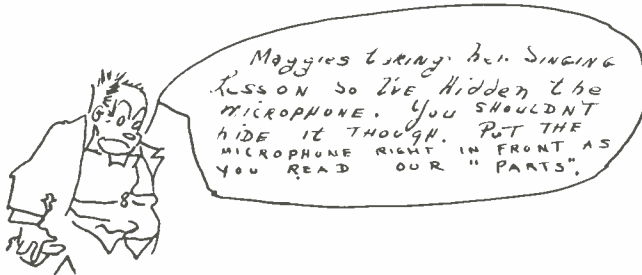 Maggies taking her SINGING
LESSON SO I'VE HIDDEN the
MICROPHONE. YOU SHOULDNT
HIDE IT THOUGH. PUT THE
MICROPHONE RIGHT IN FRONT AS
YOU READ OUR "PARTS".